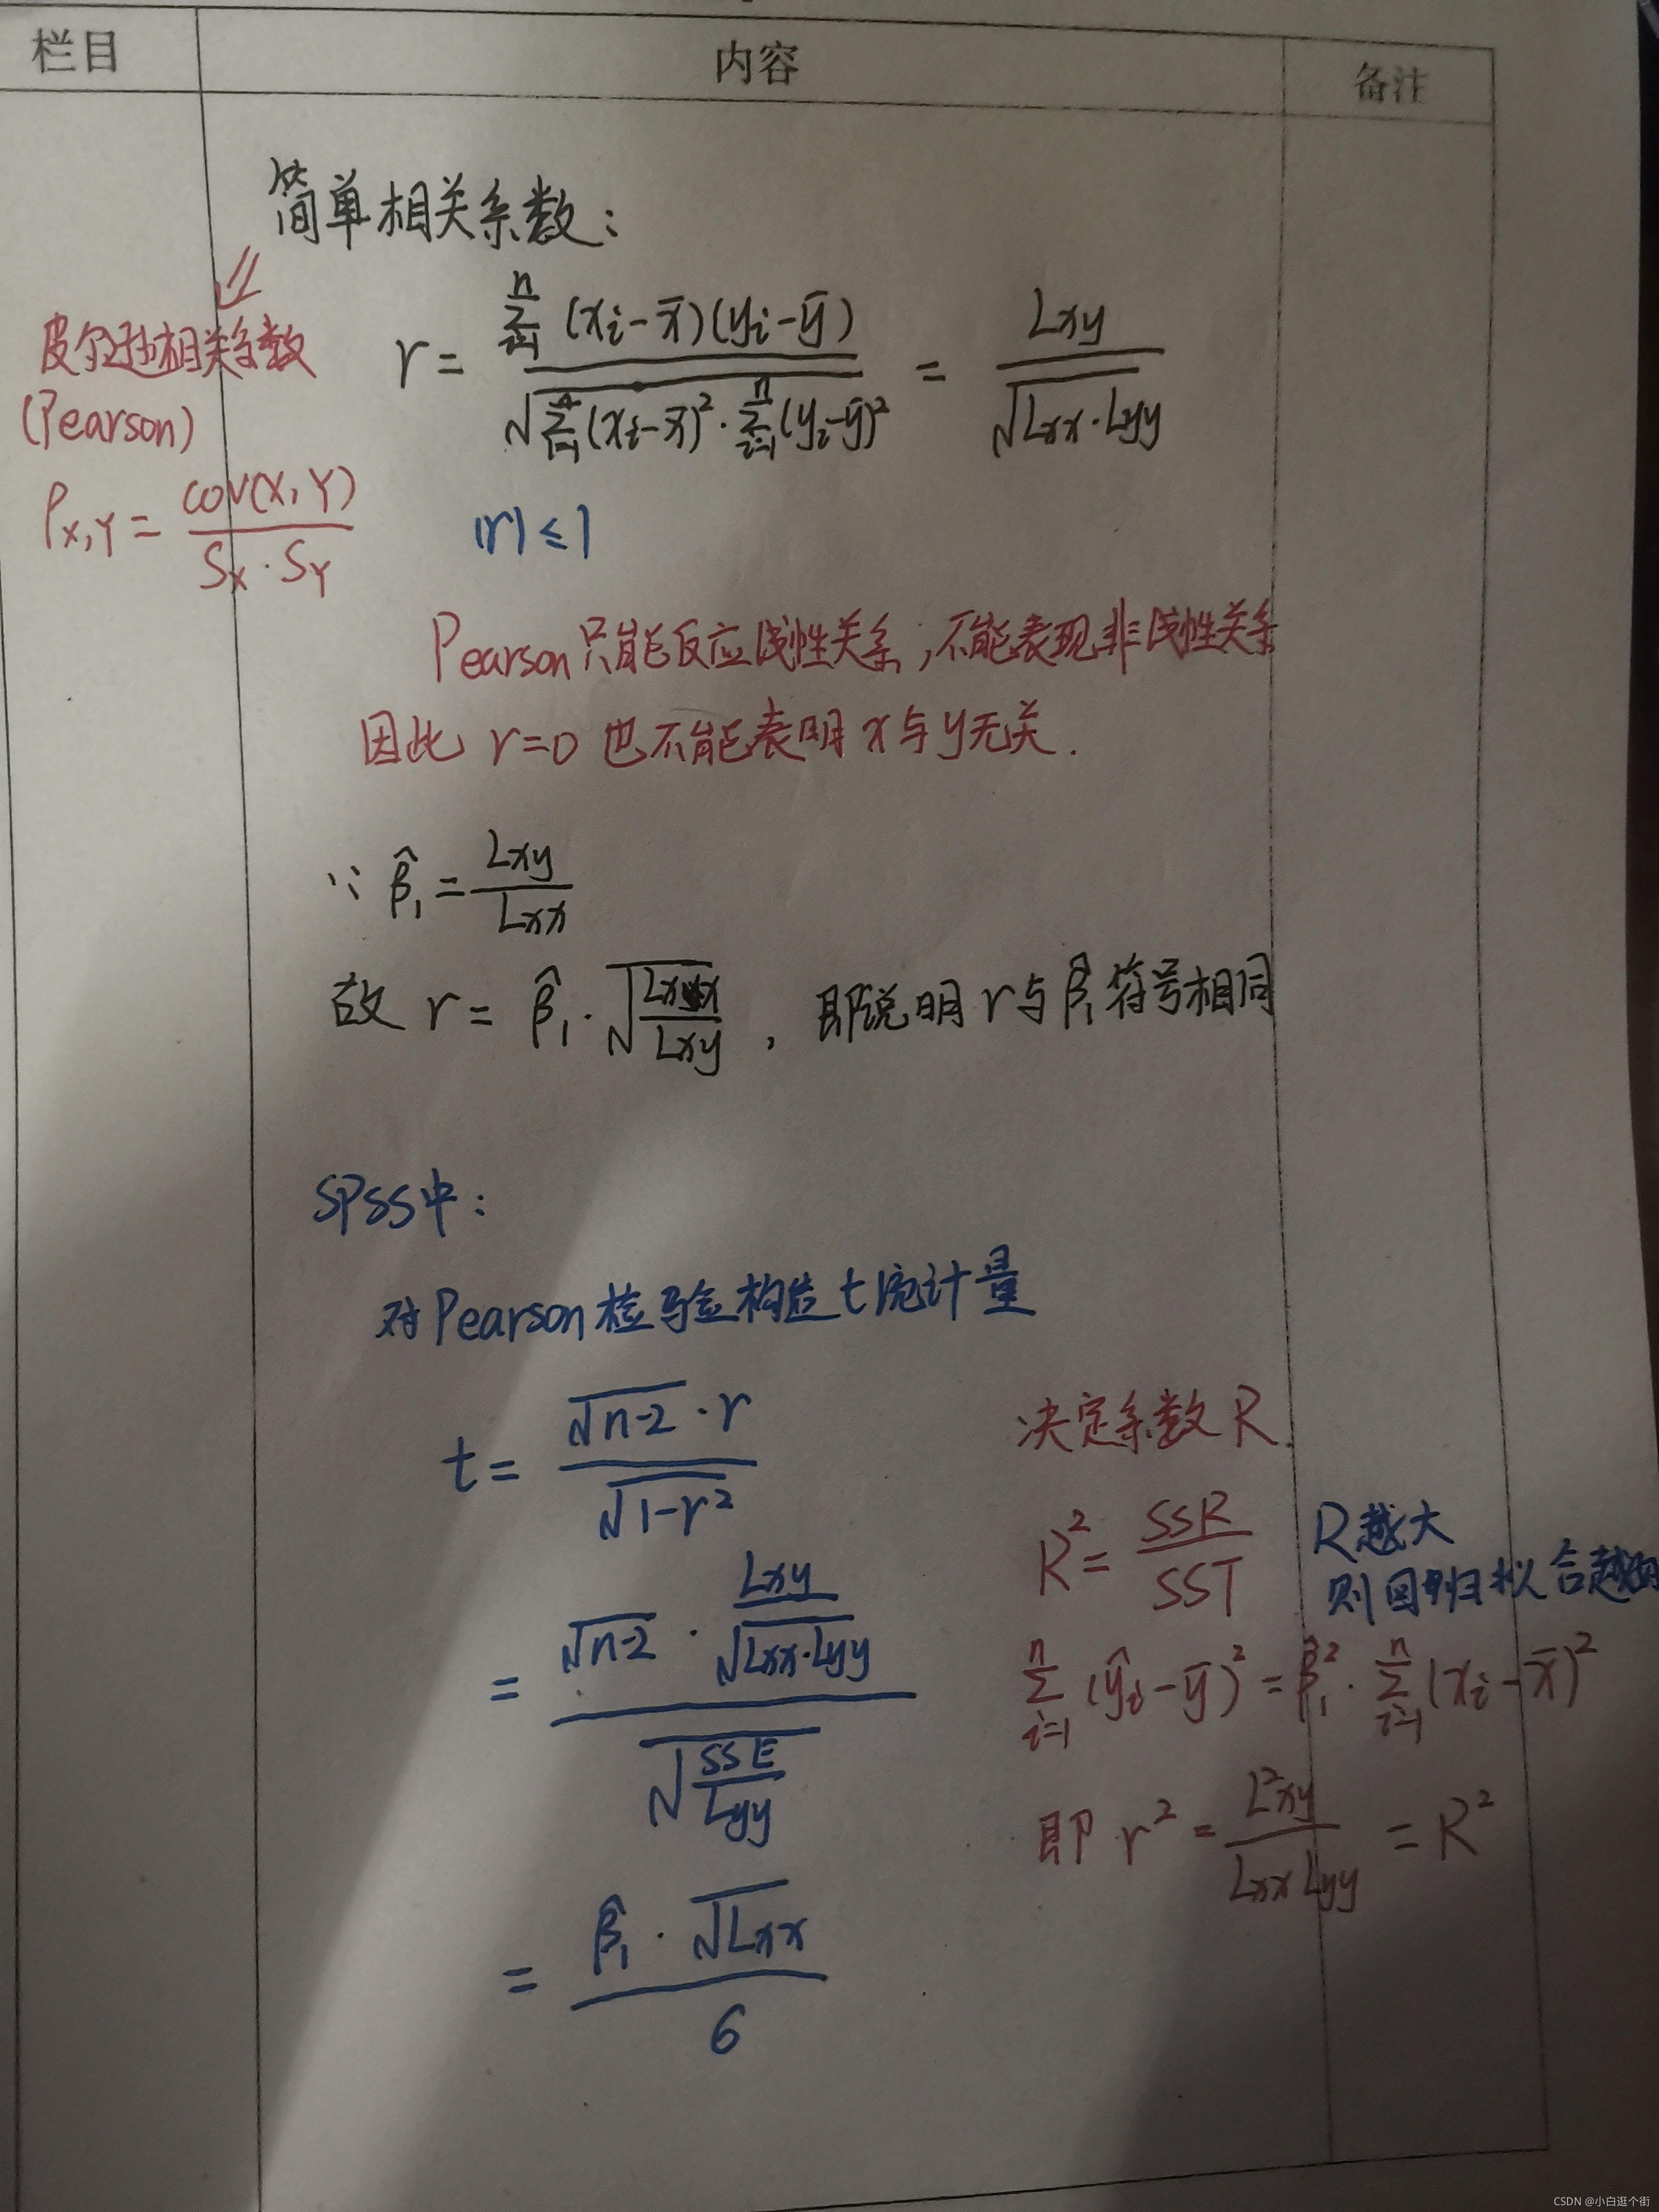 栏目 内容 备注
简单相关系数：
皮尔逊相关系数
(Pearson)
ρX,Y = cov(X,Y) / (SX · SY)
r = Σ_{i=1}^{n} (xi-x̄)(yi-ȳ) / √(Σ_{i=1}^{n}(xi-x̄)² · Σ_{i=1}^{n}(yi-ȳ)²) = Lxy / √(Lxx·Lyy)
|r| ≤ 1
Pearson只能反应线性关系，不能表现非线性关系
因此 r=0 也不能表明 x与y无关.
∵ β̂1 = Lxy / Lxx
故 r = β̂1 · √(Lxx / Lxy)，即说明r与β̂1符号相同
SPSS中：
对Pearson检验构造t统计量
t = √(n-2) · r / √(1-r²)
= √(n-2) · (Lxy / √(Lxx·Lyy)) / √(SSE / Lyy)
= β̂1 · √Lxx / 6
决定系数R.
R² = SSR / SST
R越大
则回归拟合越
Σ_{i=1}^{n} (ŷi-ȳ)² = β̂1² · Σ_{i=1}^{n} (xi-x̄)²
即 r² = L²xy / LxxLyy = R²
CSDN @小白逛个街